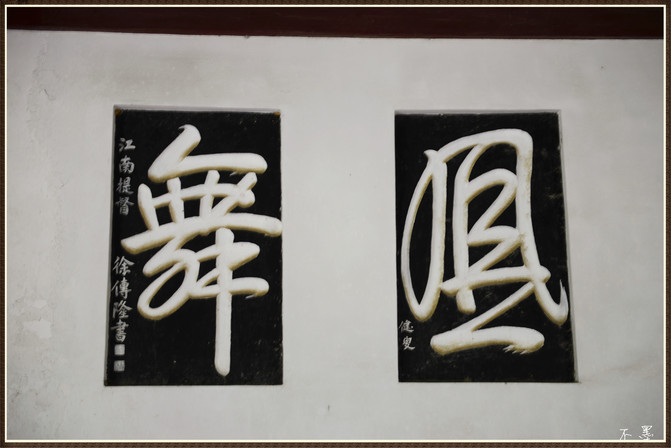 鳳
健叟
舞
江南提督 徐傳隆書
不墨